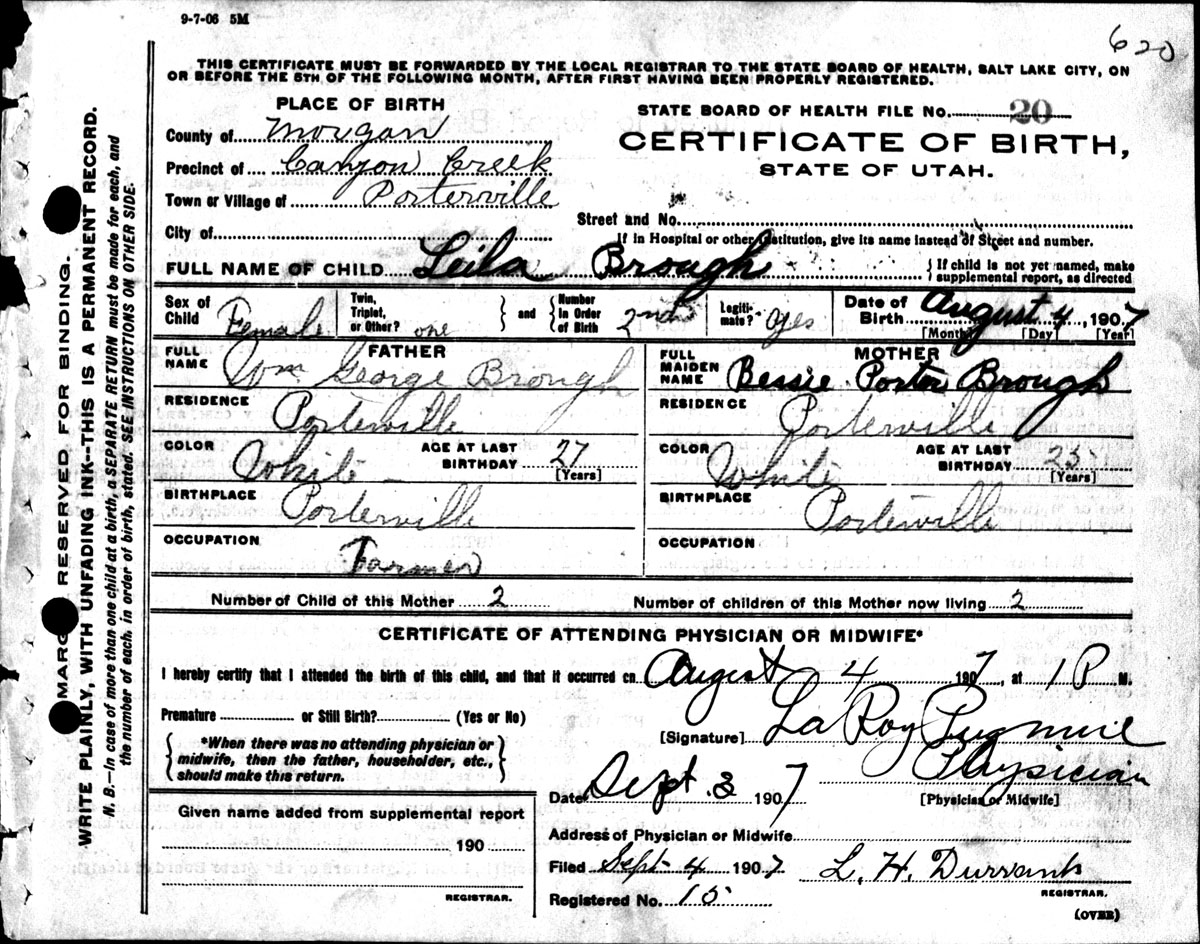 9-7-06 5M
620
THIS CERTIFICATE MUST BE FORWARDED BY THE LOCAL REGISTRAR TO THE STATE BOARD OF HEALTH, SALT LAKE CITY, ON
OR BEFORE THE 5TH OF THE FOLLOWING MONTH, AFTER FIRST HAVING BEEN PROPERLY REGISTERED.
PLACE OF BIRTH
County of Morgan
Precinct of Canyon Creek
Town or Village of Porterville
City of
STATE BOARD OF HEALTH FILE No. 20
CERTIFICATE OF BIRTH,
STATE OF UTAH.
Street and No.
If in Hospital or other Institution, give its name instead of Street and number.
FULL NAME OF CHILD Leila Brough { If child is not yet named, make
supplemental report, as directed
Sex of Child Female
Twin, Triplet, or Other? one } and { Number in Order of Birth 2nd
Legiti-mate? yes
Date of Birth August 4, 1907
[Month] [Day] [Year]
FATHER
FULL NAME Wm George Brough
RESIDENCE Porterville
COLOR White AGE AT LAST BIRTHDAY 27
[Years]
BIRTHPLACE Porterville
OCCUPATION Farmer
MOTHER
FULL MAIDEN NAME Bessie Porter Brough
RESIDENCE Porterville
COLOR White AGE AT LAST BIRTHDAY 25
[Years]
BIRTHPLACE Porterville
OCCUPATION
Number of Child of this Mother 2 Number of children of this Mother now living 2
CERTIFICATE OF ATTENDING PHYSICIAN OR MIDWIFE*
I hereby certify that I attended the birth of this child, and that it occurred on August 4 1907, at 1 P M.
Premature or Still Birth? (Yes or No)
{ *When there was no attending physician or
midwife, then the father, householder, etc.,
should make this return. }
[Signature] LaRoy Pugmire
Physician
[Physician or Midwife]
Date Sept. 3 1907
Given name added from supplemental report
190
REGISTRAR.
Address of Physician or Midwife
Filed Sept 4 1907 L. H. Durrant
REGISTRAR.
Registered No. 15
(OVER)
MARGIN RESERVED FOR BINDING.
WRITE PLAINLY, WITH UNFADING INK--THIS IS A PERMANENT RECORD.
N. B.—In case of more than one child at a birth, a SEPARATE RETURN must be made for each, and
the number of each, in order of birth, stated. SEE INSTRUCTIONS ON OTHER SIDE.